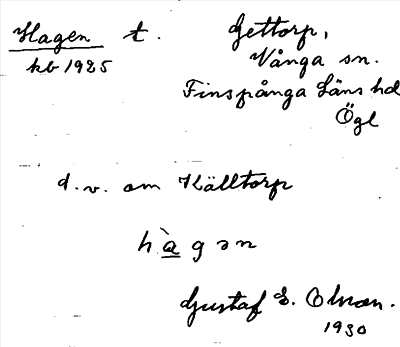 Hagen t. Gettorp,
kb 1925 Vånga sn.
Finspånga Läns hd
Ögl
d.v. om Källtorp
hàgən
Gustaf E. Olson.
1930